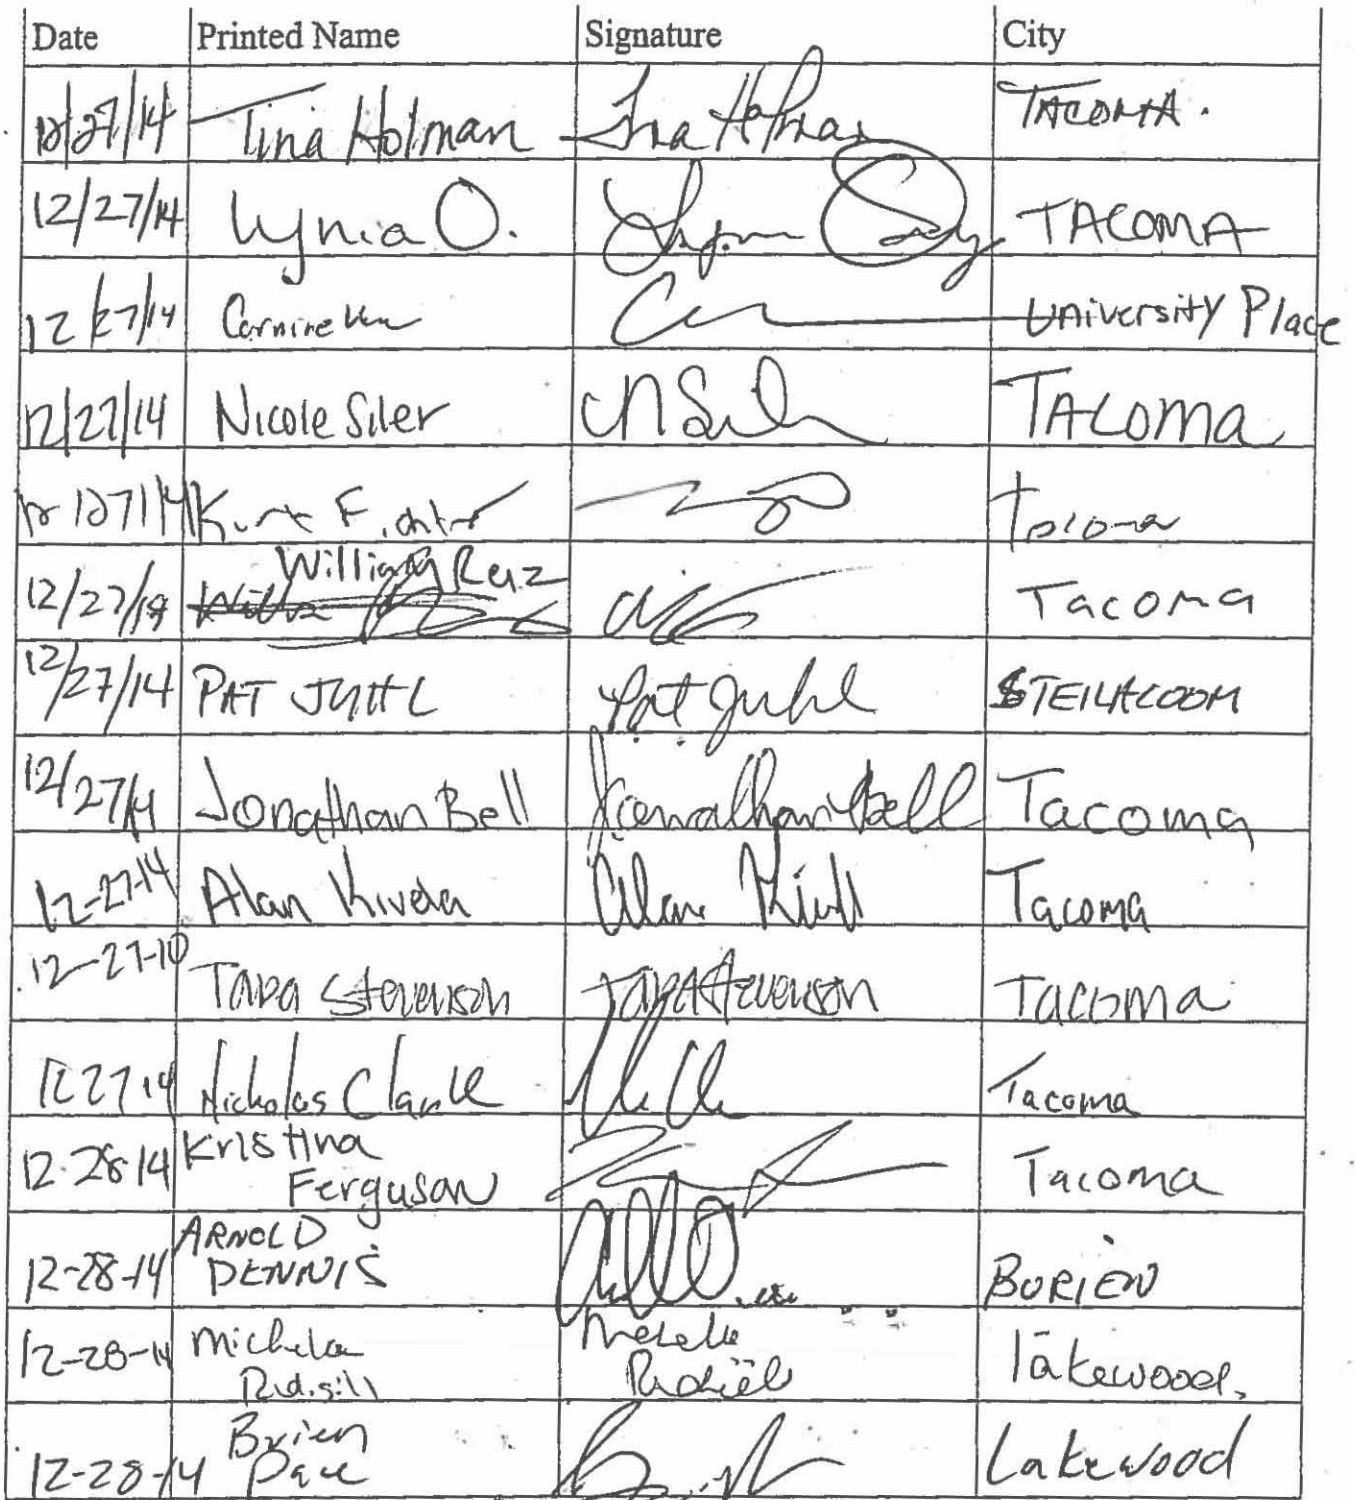 Date Printed Name Signature City
12/27/14 Tina Holman Tina Holman TACOMA.
12/27/14 Lynia O. TACOMA
12/27/14 University Place
12/27/14 Nicole Siler N Siler TACOMA
12/27/14 Kurt Tacoma
William Ruiz
12/27/14 Tacoma
12/27/14 PAT JUHL Pat Juhl STEILACOOM
12/27/14 Jonathan Bell Jonathan Bell Tacoma
12-27-14 Alan Kiveda Alan Tacoma
12-27-10 Tara Stevenson Tara Stevenson Tacoma
12 27 14 Nicholas Clark Tacoma
12-28 14 Kristina Ferguson Tacoma
12-28-14 ARNOLD DENNIS BURIEN
12-28-14 Lakewood.
12-28-14 Brien Pace Lakewood